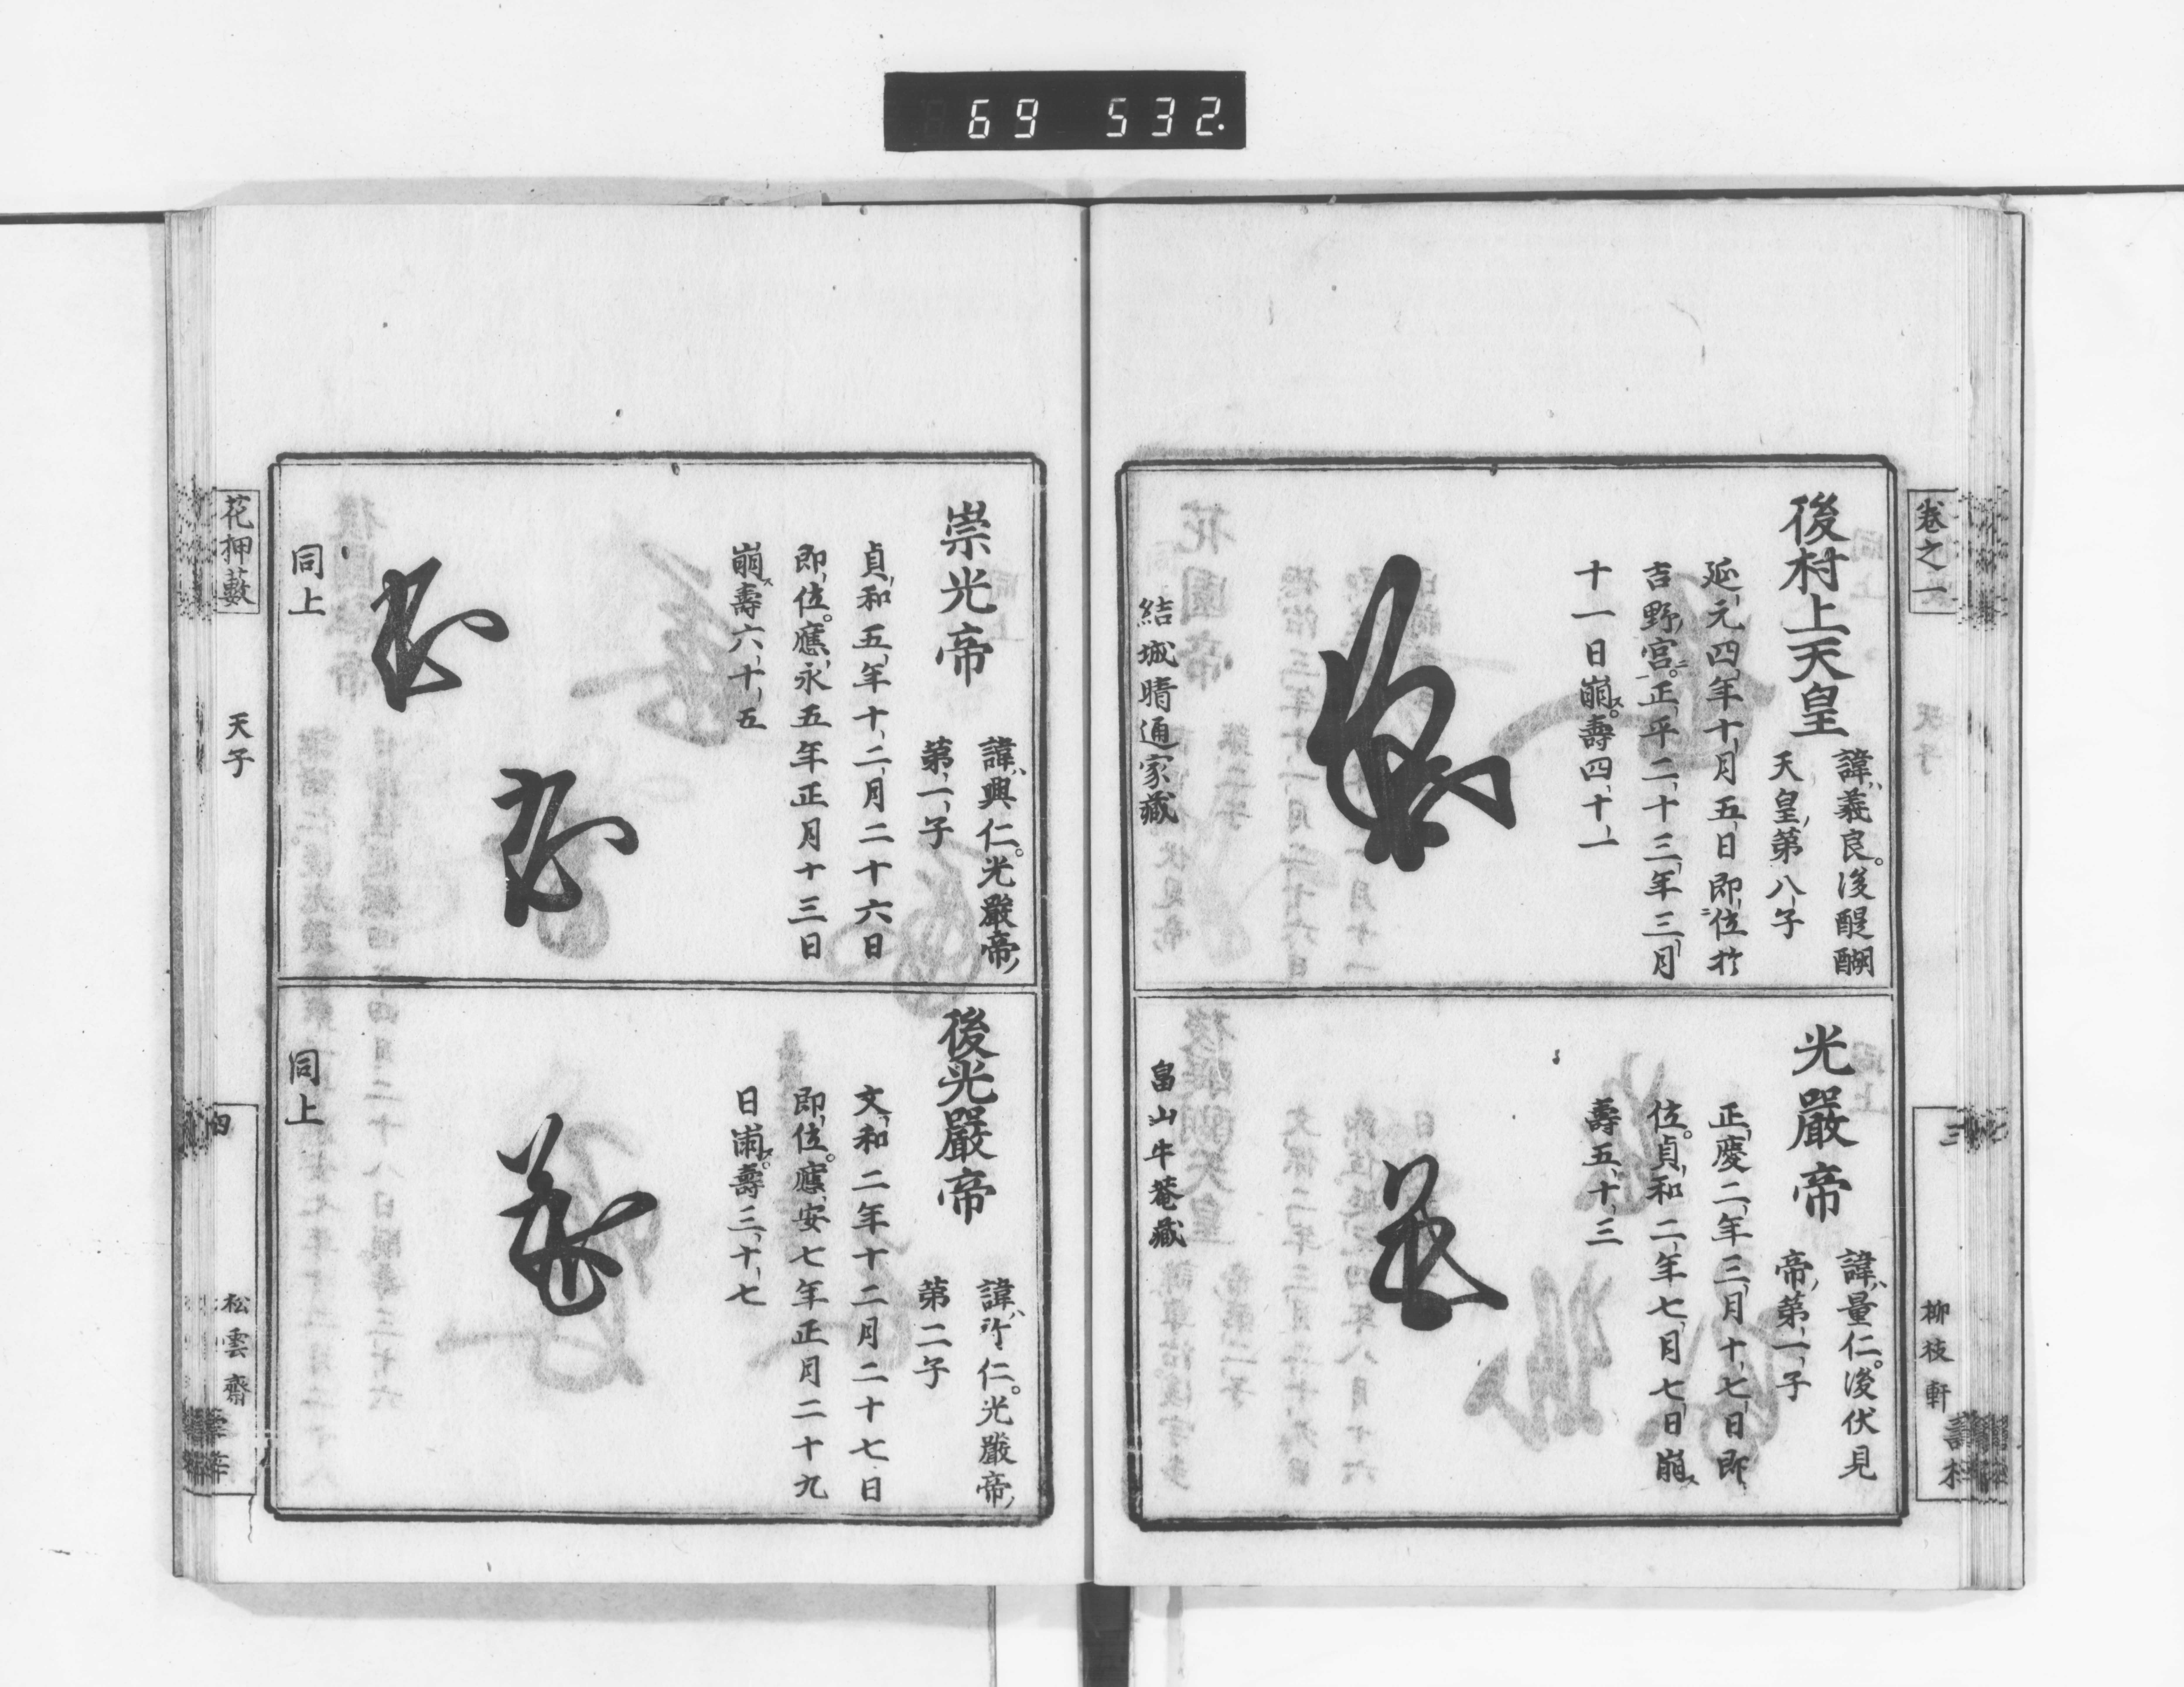 69 532.
卷之一
三
柳枝軒
後村上天皇
諱義良。後醍醐
天皇第八子
延元四年十月五日即位於
吉野宮。正平二十三年三月
十一日崩。壽四十一
結城晴通家藏
光嚴帝
諱量仁。後伏見
帝第一子
正慶二年三月十七日即
位。貞和二年七月七日崩
壽五十三
畠山牛菴藏
崇光帝
諱興仁。光嚴帝
第一子
貞和五年十二月二十六日
即位。應永五年正月十三日
崩壽六十五
同上
後光嚴帝
諱 仁。光嚴帝
第二子
文和二年十二月二十七日
即位。應安七年正月二十九
日崩。壽三十七
同上
花押藪
天子
四
松雲齋